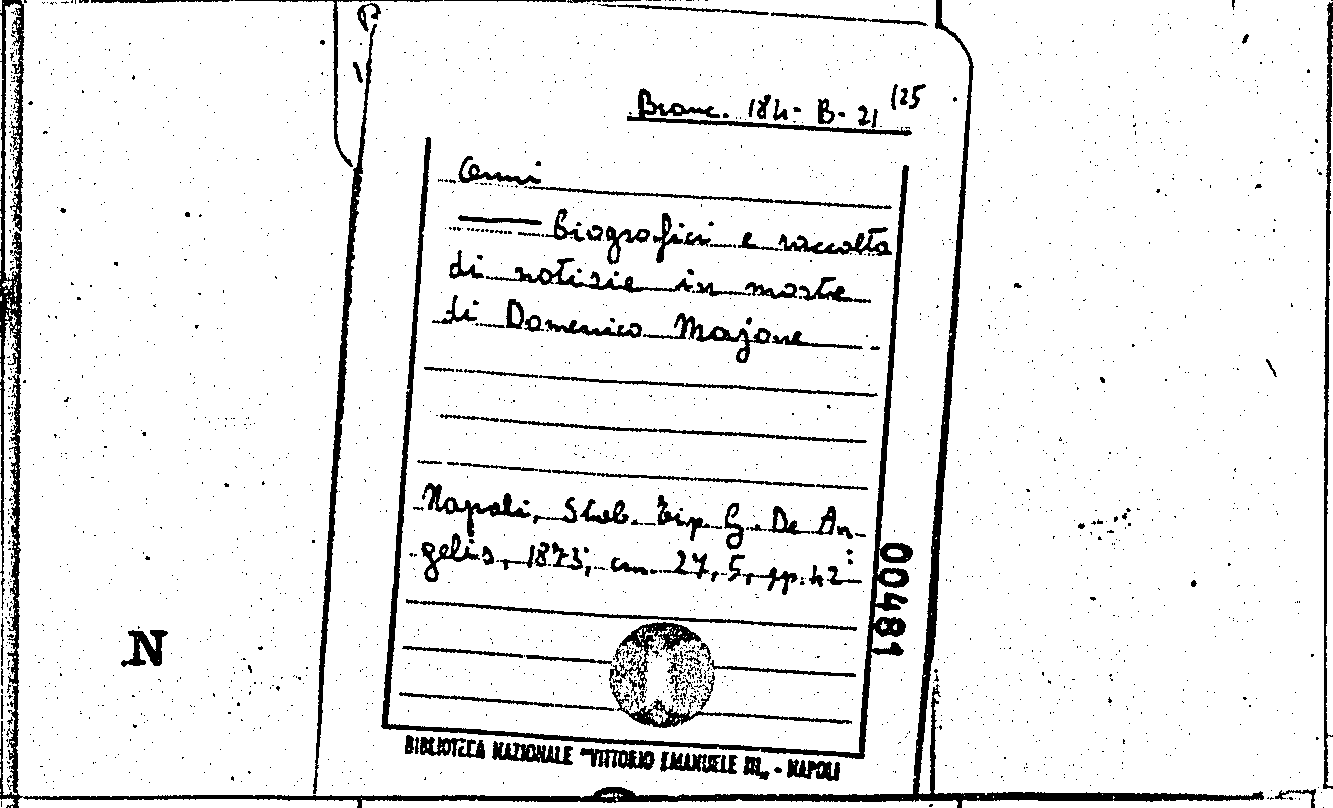 Branc. 184- B- 21 125
Cenni
biografici e raccolta
di notizie in morte
di Domenico Majone
Napoli, Stab. Tip. G. De An-
gelis, 1873; cm. 27,5, pp. 42
00481
N
BIBLIOTECA NAZIONALE "VITTORIO EMANUELE III„ - NAPOLI